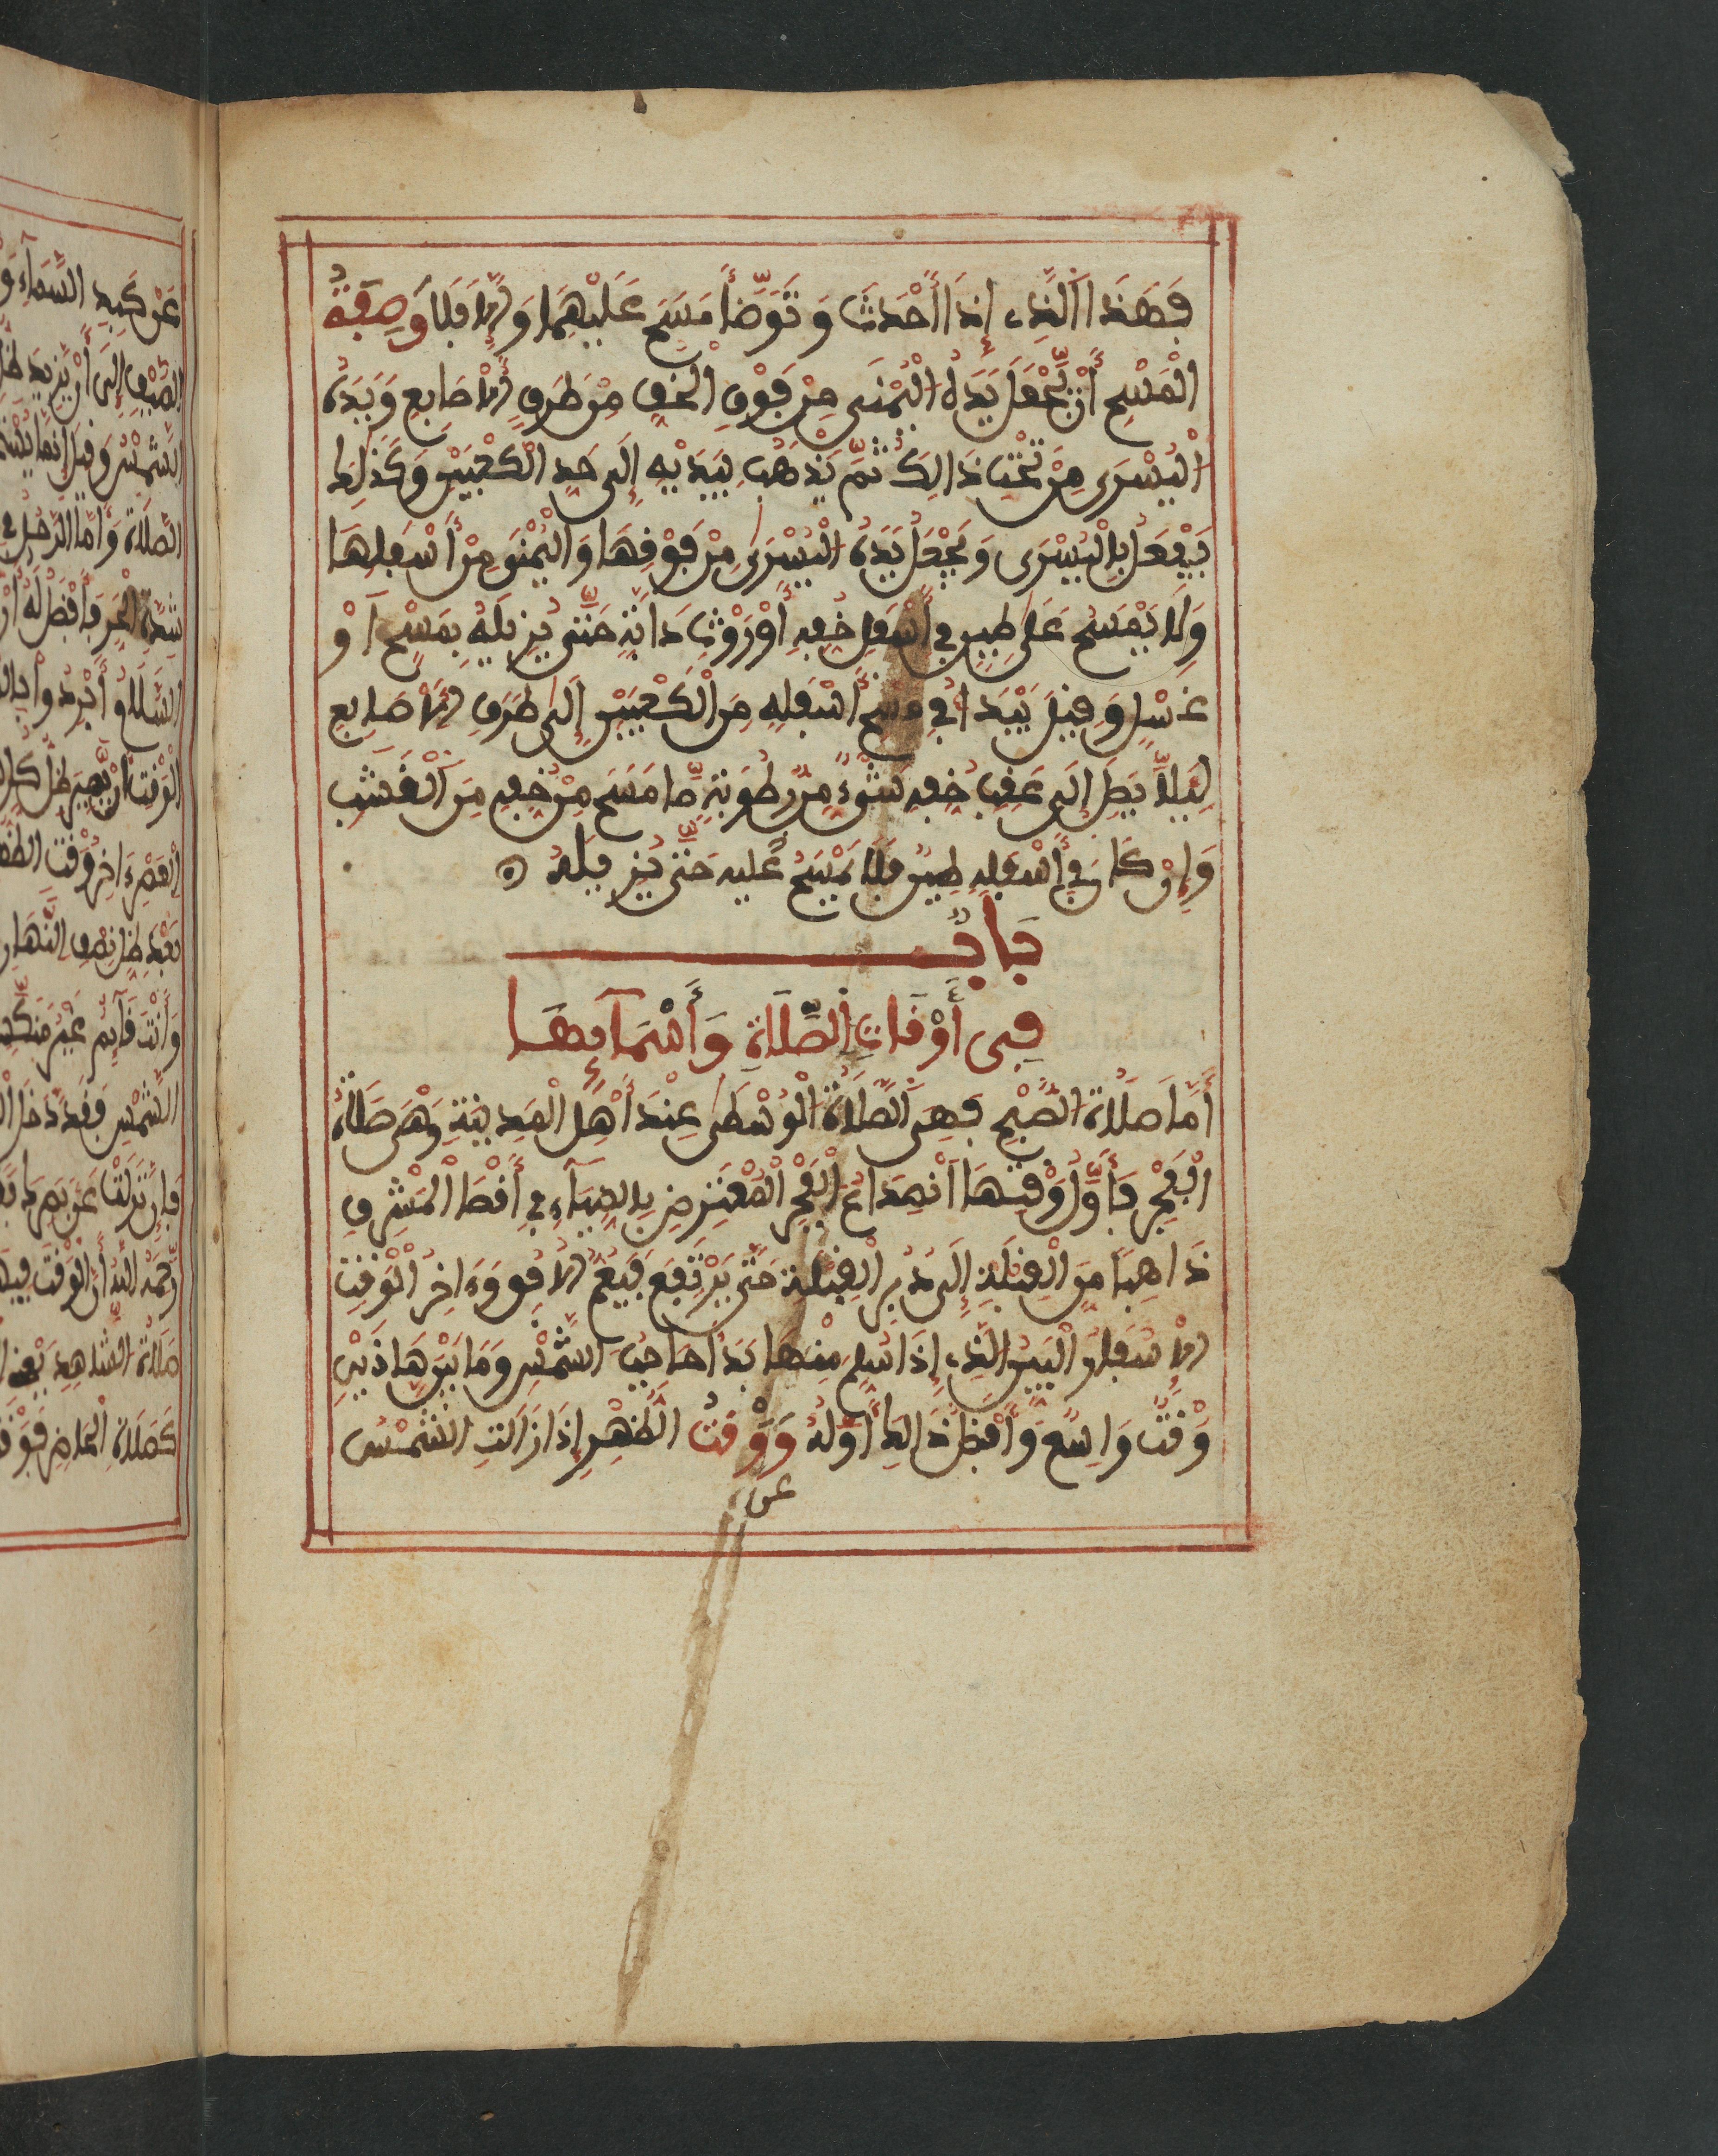 فَهَذَا الَّذِي إِذَا أَحْدَثَ وَتَوَضَّأَ مَسَحَ عَلَيْهِمَا وَإِلَّا فَلَا وَصِفَةُ
الْمَسْحِ أَنْ يَّجْعَلَ يَدَهُ الْيُمْنَى مِنْ فَوْقِ الْخُفِّ مِنْ طَرَفِ الْأَصَابِعِ وَيَدَهُ
الْيُسْرَى مِنْ تَحْتِ ذَالِكَ ثُمَّ يَذْهَبُ بِيَدَيْهِ إِلَى حَدِّ الْكَعْبَيْنِ وَكَذَلِكَ
يَفْعَلُ بِالْيُسْرَى وَيَجْعَلُ يَدَهُ الْيُسْرَى مِنْ فَوْقِهَا وَالْيُمْنَى مِنْ أَسْفَلِهَا
وَلَا يَمْسَحُ عَلَى طِينٍ فِي أَسْفَلِ خُفِّهِ أَوْ رَوْثِ دَابَّةٍ حَتَّى يُزِيلَهُ بِمَسْحٍ أَوْ
غَسْلٍ وَقِيلَ يَبْدَأُ فِي مَسْحِ أَسْفَلِهِ مِنَ الْكَعْبَيْنِ إِلَى طَرَفِ الْأَصَابِعِ
لِيَلَّا يَصِلَ إِلَى عَقِبِ خُفِّهِ شَيْءٌ مِّنْ رُّطُوبَةِ مَّا مَسَحَ مِنْ خُفِّهِ مِنَ الْقَشَبِ
وَإِنْ كَانَ فِي أَسْفَلِهِ طِينٌ فَلَا يَمْسَحْ عَلَيْهِ حَتَّى يُزِيلَهُ ه
بَابٌ
فِي أَوْقَاتِ الصَّلَاةِ وَأَسْمَآئِهَا
أَمَّا صَلَاةُ الصُّبْحِ فَهِيَ الصَّلَاةُ الْوُسْطَى عِنْدَ أَهْلِ الْمَدِينَةِ وَهْيَ صَلَاةُ
الْفَجْرِ فَأَوَّلُ وَقْتِهَا انْصِدَاعُ الْفَجْرِ الْمُعْتَرِضِ بِالضِّيَآءِ فِي أَقْصَا الْمَشْرِقِ
ذَاهِبًا مِنَ الْقِبْلَةِ إِلَى دُبُرِ الْقِبْلَةِ حَتَّى يَرْتَفِعَ فَيَعُمَّ الْأُفُقَ وَءَاخِرُ الْوَقْتِ
الْإِسْفَارُ الْبَيِّنُ الَّذِي إِذَا سَلَّمَ مِنْهَا بَدَا حَاجِبُ الشَّمْسِ وَمَا بَيْنَ هَاذَيْنِ
وَقْتٌ وَاسِعٌ وَأَفْضَلُ ذَالِكَ أَوَّلُهُ وَوَقْتُ الظُّهْرِ إِذَا زَالَتِ الشَّمْسُ
عن
عَنْ كَبِدِ السَّمَاءِ وَ
الصَّيْفِ إِلَى أَنْ يَّزِيدَ ظِلُّ
الشَّمْسُ وَقِيلَ إِنَّمَا
الصَّلَاةَ وَأَمَّا الرَّجُلُ فِي
شِدَّةِ الْحَرِّ فَأَفْضَلُ لَهُ أَنْ
السَّلَامُ أَبْرِدُوا
الْوَقْتِ أَنْ يَّصِيرَ ظِلُّ كُلِّ
الْعَصْرِ ءَاخِرُ وَقْتِ
بَعْدَ ظِلِّ نِصْفِ النَّهَارِ
وَأَنْتَ قَآئِمٌ غَيْرُ
الشَّمْسِ فَقَدْ دَخَلَ
فَإِنْ نَزَلَتْ عَنْ بَصَرِكَ
رَحِمَهُ اللَّهُ أَنَّ الْوَقْتَ فِيهَا
صَلَاةُ الشَّاهِدِ يَعْنِي
كَصَلَاةِ الْحَاضِرِ